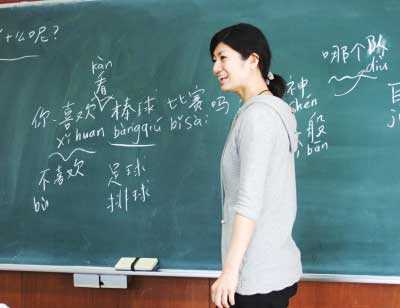 什么呢?
kàn
看
你喜欢棒球比赛吗
xǐ huan bàngqiú bǐsài
不喜欢 足球
bù 排球
哪个队
duì
神
shén
般
bān